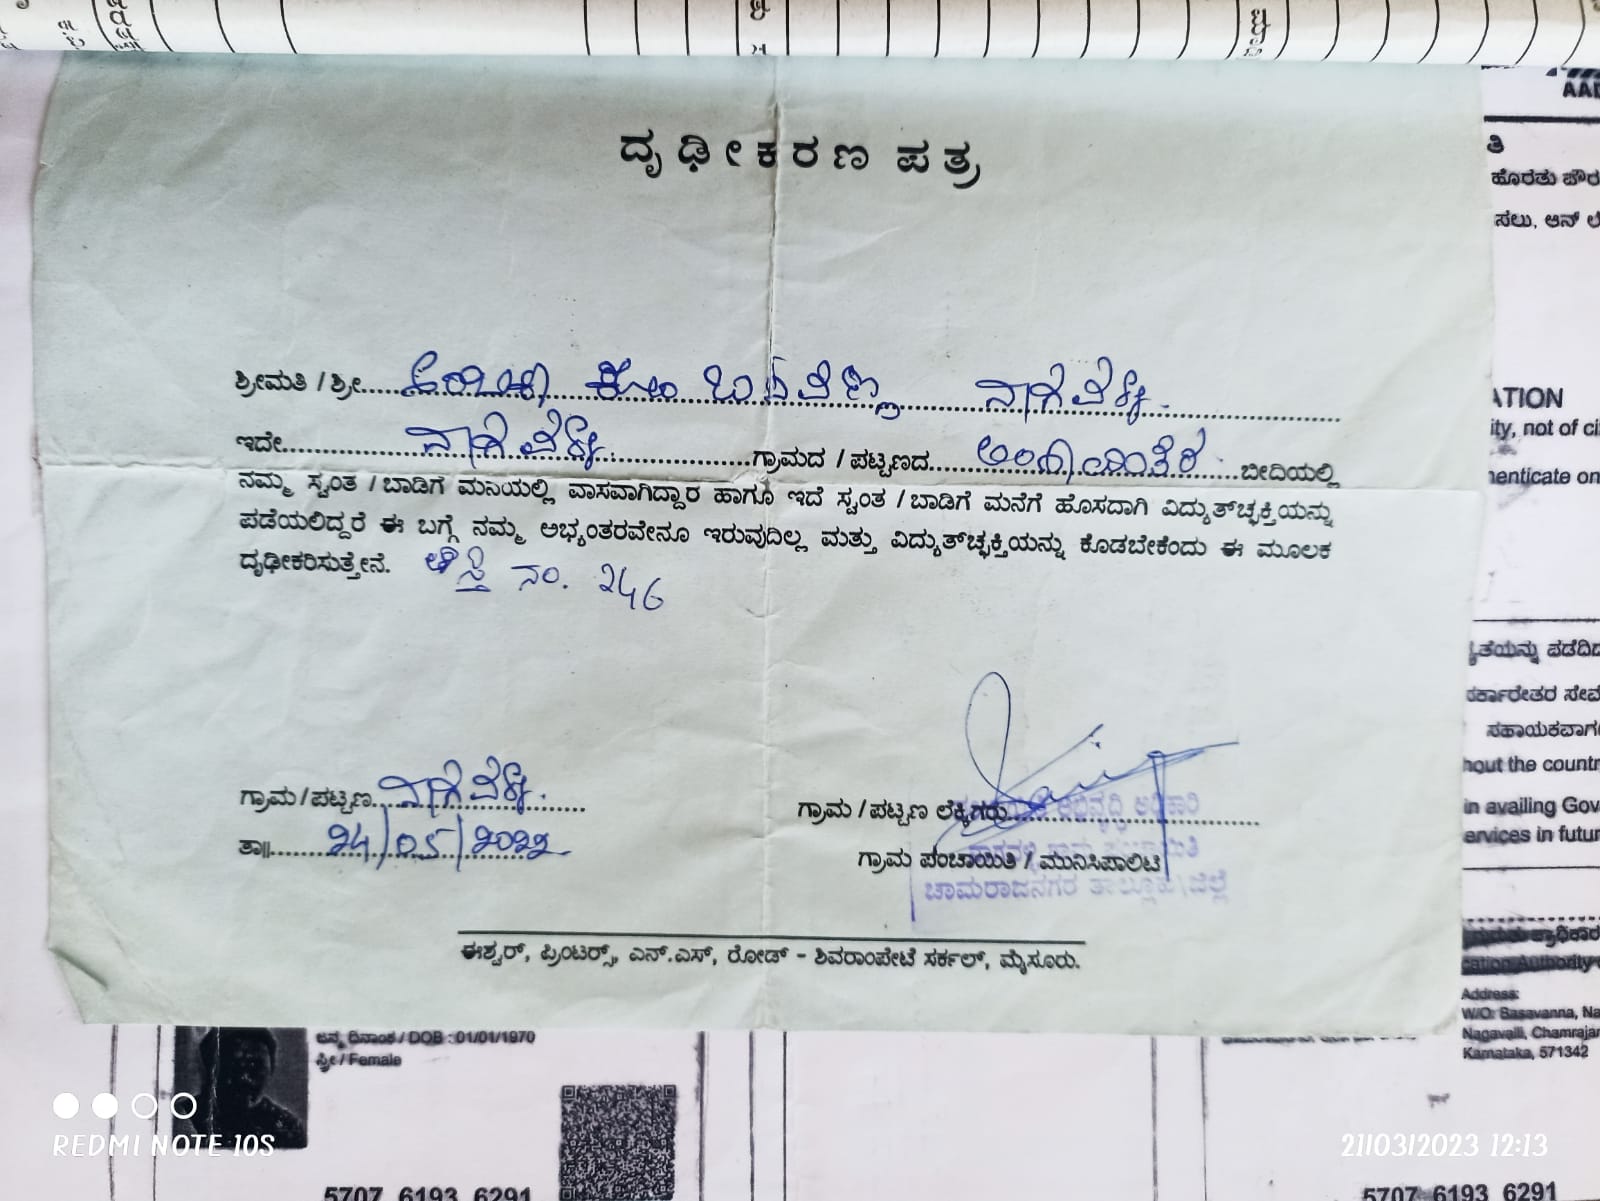 AAD
ತಿ
ಹೊರತು ಪೌರ
ಸಲು, ಆನ್ ಲೆ
ದೃಢೀಕರಣ ಪತ್ರ
ಶ್ರೀಮತಿ / ಶ್ರೀ..... ಕೋಂ ಬಸವಣ್ಣ ........ ನಾಗವಳ್ಳಿ.
ಇದೇ........ನಾಗವಳ್ಳಿ........ಗ್ರಾಮದ / ಪಟ್ಟಣದ........ಬೀದಿಯಲ್ಲಿ
ನಮ್ಮ ಸ್ವಂತ / ಬಾಡಿಗೆ ಮನಯಲ್ಲಿ ವಾಸವಾಗಿದ್ದಾರ ಹಾಗೂ ಇದೆ ಸ್ವಂತ / ಬಾಡಿಗೆ ಮನೆಗೆ ಹೊಸದಾಗಿ ವಿದ್ಯುತ್‌ಚ್ಛಕ್ತಿಯನ್ನು
ಪಡೆಯಲಿದ್ದರೆ ಈ ಬಗ್ಗೆ ನಮ್ಮ ಅಭ್ಯಂತರವೇನೂ ಇರುವುದಿಲ್ಲ ಮತ್ತು ವಿದ್ಯುತ್‌ಚ್ಛಕ್ತಿಯನ್ನು ಕೊಡಬೇಕೆಂದು ಈ ಮೂಲಕ
ದೃಢೀಕರಿಸುತ್ತೇನೆ. ಆಸ್ತಿ ನಂ. 246
ಗ್ರಾಮ/ಪಟ್ಟಣ..ನಾಗವಳ್ಳಿ.
ತಾ||....24/05/2022
ಗ್ರಾಮ / ಪಟ್ಟಣ ಲೆಕ್ಕಿಗರು........
ಅಭಿವೃದ್ಧಿ ಅಧಿಕಾರಿ
ಗ್ರಾಮ ಪಂಚಾಯಿತಿ / ಮುನಿಸಿಪಾಲಿಟಿ
ಚಾಮರಾಜನಗರ ತಾಲ್ಲೂಕು/ಜಿಲ್ಲೆ
ಈಶ್ವರ್, ಪ್ರಿಂಟರ್ಸ್, ಎನ್.ಎಸ್, ರೋಡ್ - ಶಿವರಾಂಪೇಟೆ ಸರ್ಕಲ್, ಮೈಸೂರು.
ATION
ity, not of ci
henticate on
ತೆಯನ್ನು ಪಡೆದಿದ
ರ್ಕಾರೇತರ ಸೇವೆ
ಸಹಾಯಕವಾಗ
hout the countr
in availing Gov
ervices in futur
ಪ್ರಾಧಿಕಾರ
cation Authority
Address:
W/O: Basavanna, Na
Nagavalli, Chamrajar
Karnataka, 571342
ಜನ್ಮ ದಿನಾಂಕ / DOB : 01/01/1970
ಸ್ತ್ರೀ / Female
REDMI NOTE 10S
21/03/2023 12:13
5707 6193 6291
5707 6193 6291